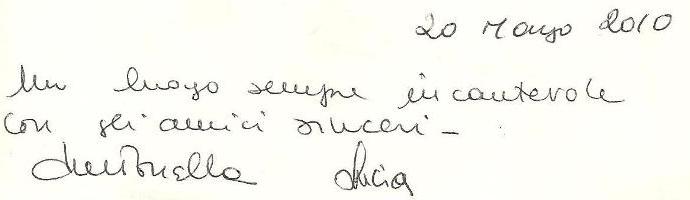 20 Marzo 2010
Un luogo sempre incantevole
con gli amici sinceri -
Antonella Lucia